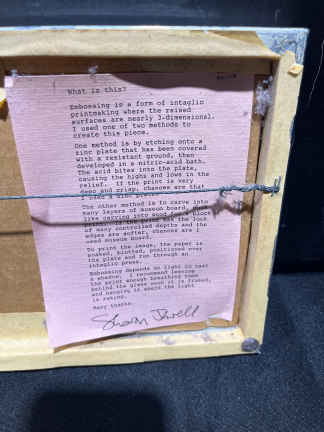 What is this?
Embossing is a form of intaglio
printmaking where the raised
surfaces are nearly 3-dimensional.
I used one of two methods to
create this piece.
One method is by etching onto a
zinc plate that has been covered
with a resistant ground, then
developed in a nitric-acid bath.
The acid bites into the plate,
causing the highs and lows in the
relief. If the print is very
deep and crisp, chances are that
I used a zinc plate.
The other method is to carve into
many layers of museum board, much
like carving into wood for a block
print. If the print has the look
of many controlled depths and the
edges are softer, chances are I
used museum board.
To print the image, the paper is
soaked, blotted, positioned over
the plate and run through an
intaglio press.
Embossing depends on light to cast
a shadow. I recommend leaving
the print enough breathing room
behind the glass once it is framed,
and hanging it where the light
is raking.
Many thanks.